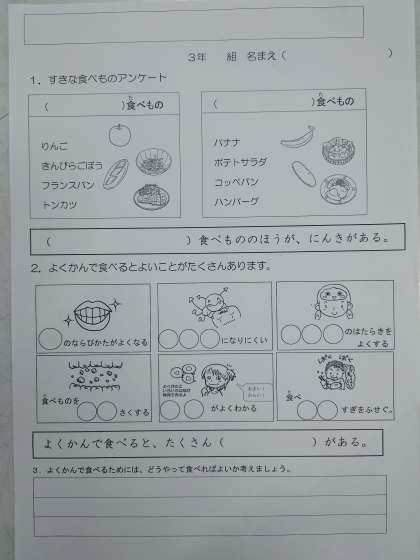 3年　組　名まえ（　　　　　　　　）
1．すきな食べものアンケート
（　　　　　　）食べもの
りんご
きんぴらごぼう
フランスパン
トンカツ
（　　　　　　）食べもの
バナナ
ポテトサラダ
コッペパン
ハンバーグ
（　　　　　　　　　　）食べもののほうが、にんきがある。
2．よくかんで食べるとよいことがたくさんあります。
◯のならびかたがよくなる
◯◯◯になりにくい
◯◯◯のはたらきを
よくする
食べものを◯◯さくする
◯◯がよくわかる
食べ
◯◯すぎをふせぐ。
よくかんで食べると、たくさん（　　　　　　　）がある。
3．よくかんで食べるためには、どうやって食べればよいか考えましょう。